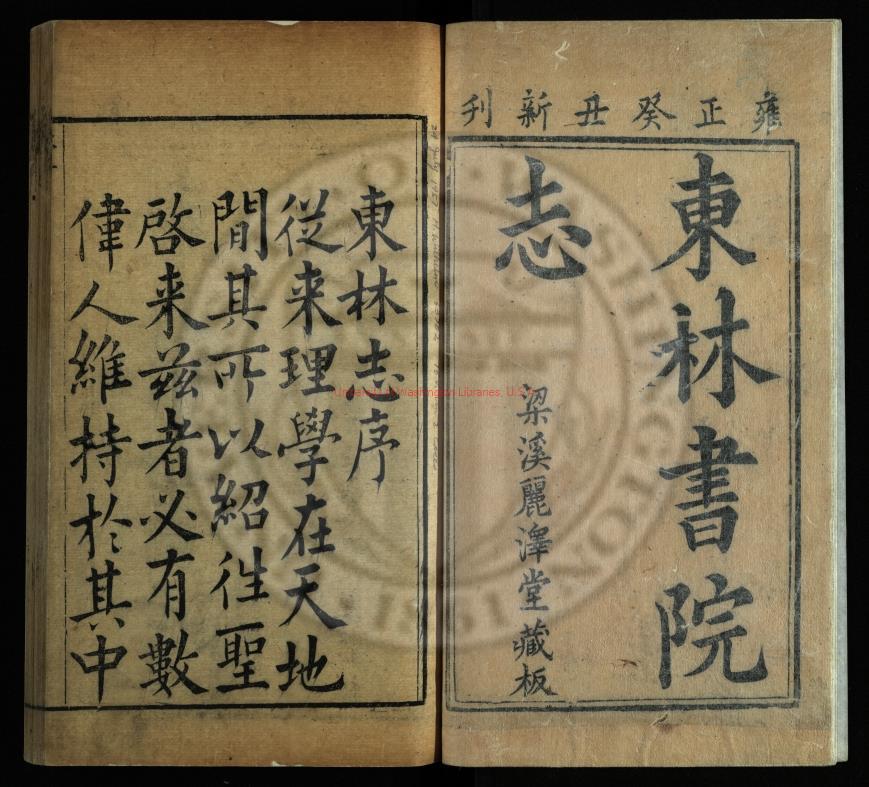 雍正癸丑新刋
東林書院
志
梁溪麗澤堂藏板
東林志序
從来理學在天地
間其所以紹徃聖
啓来兹者必有數
偉人維持於其中
University of Washington Libraries, U.S.A.